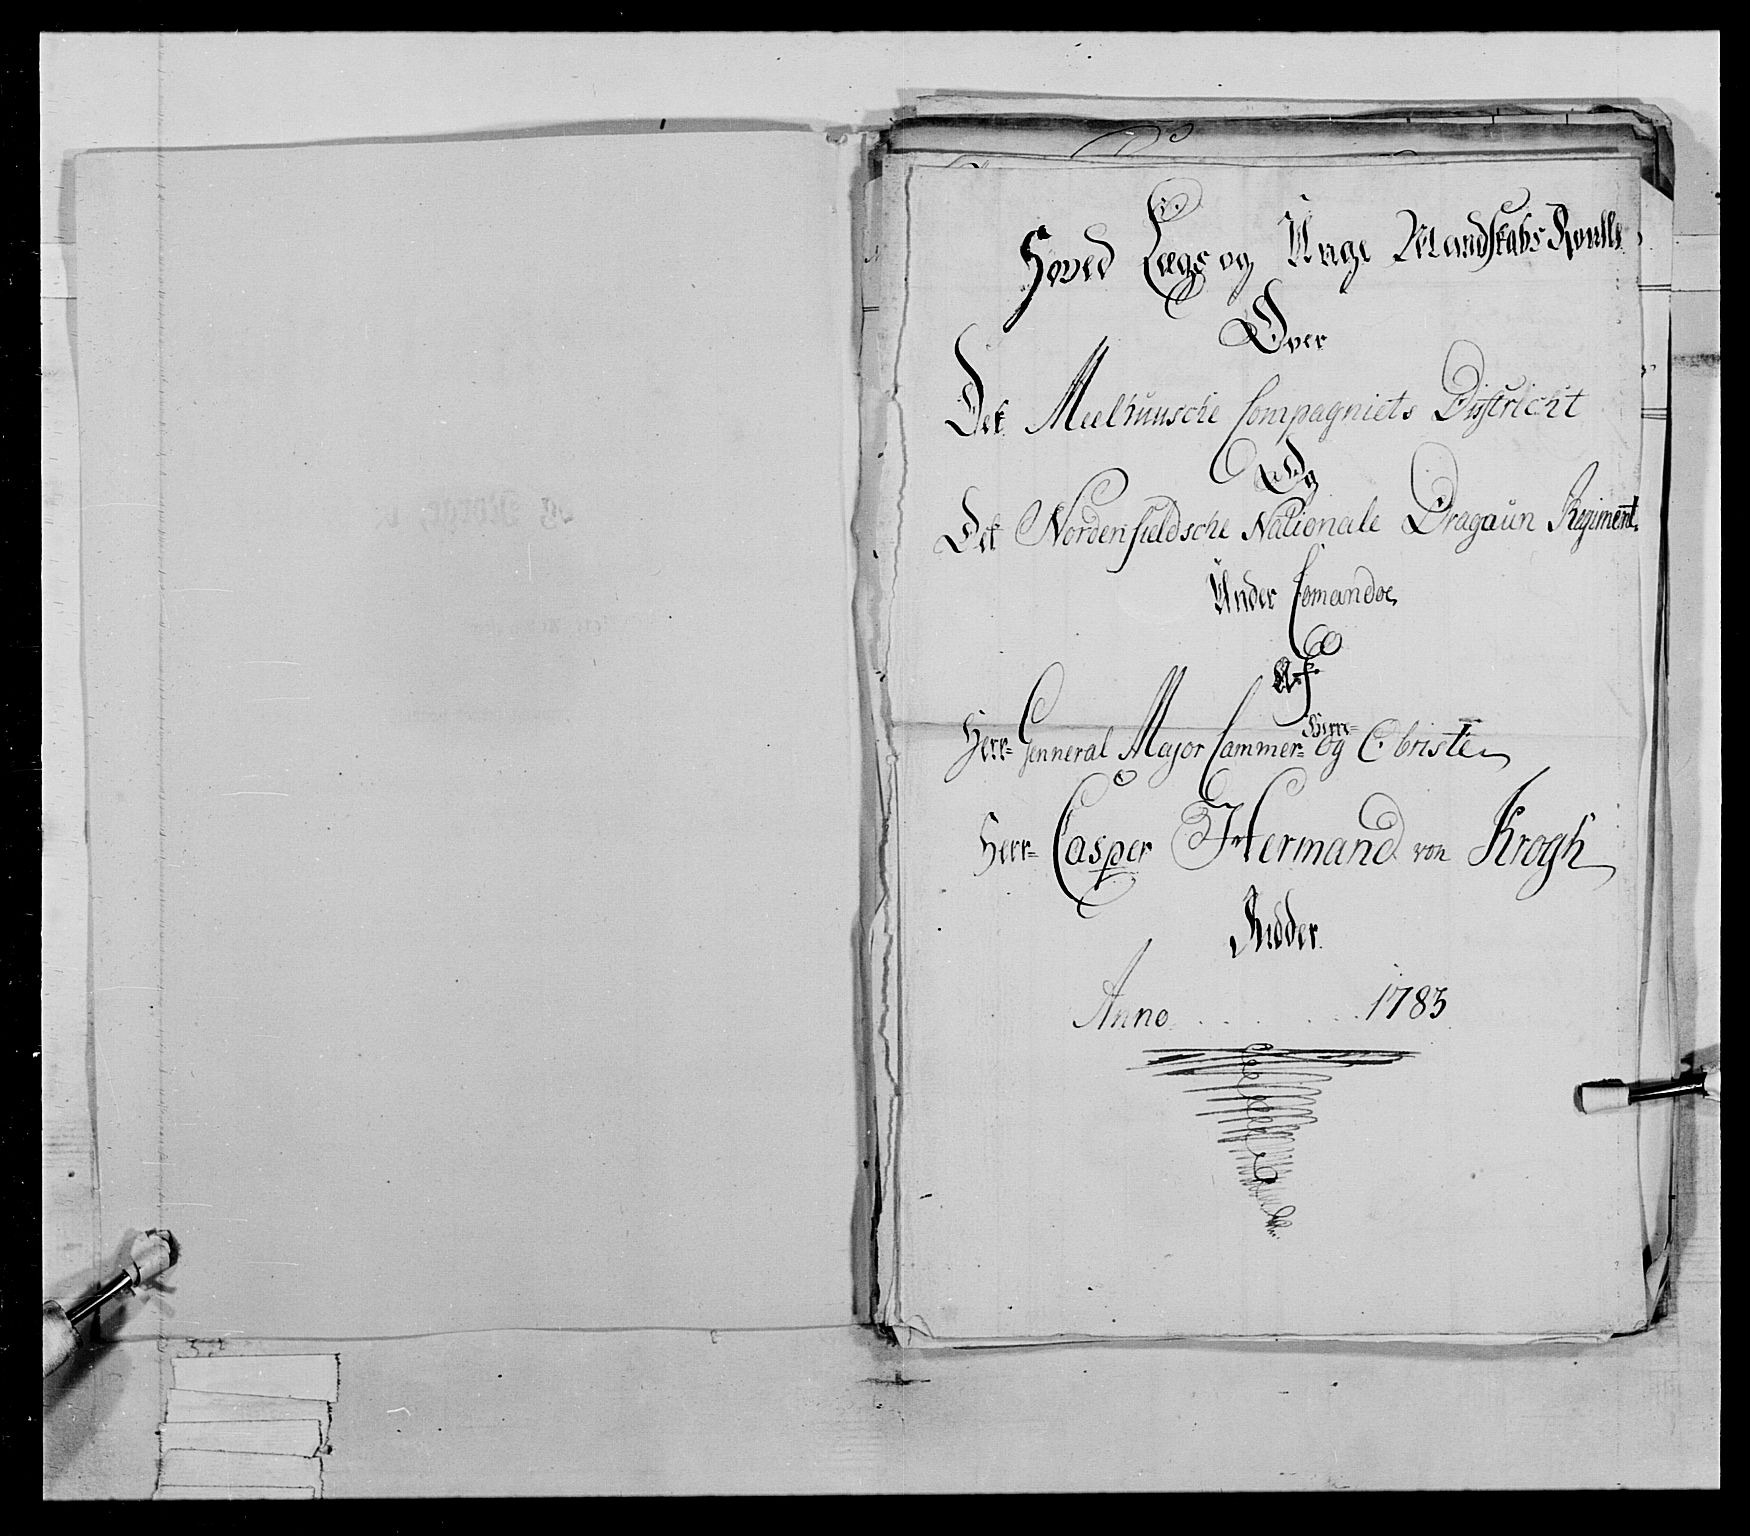 Hoved Lægs og Unge Mandskabs Roulle
Over
Det Meelhuusche Compagniets District
Og
Det Nordenfieldsche Nationale Dragoun Regiment.
Under Comandoe
Af
Herr= Genneral Major Cammer= Herre= og Obristen
Herr= Casper Hermand von Krogh
Ridder.
Anno . . . . . . 1783